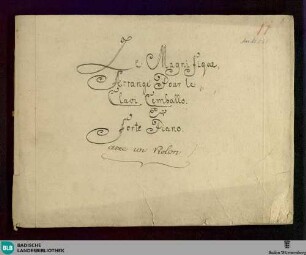 Le Magnifique,
Arrangé Pour le
Clavi Cemballo.
Et
Forte Piano.
avec un Violon
BLB
BADISCHE
LANDESBIBLIOTHEK
Baden-Württemberg